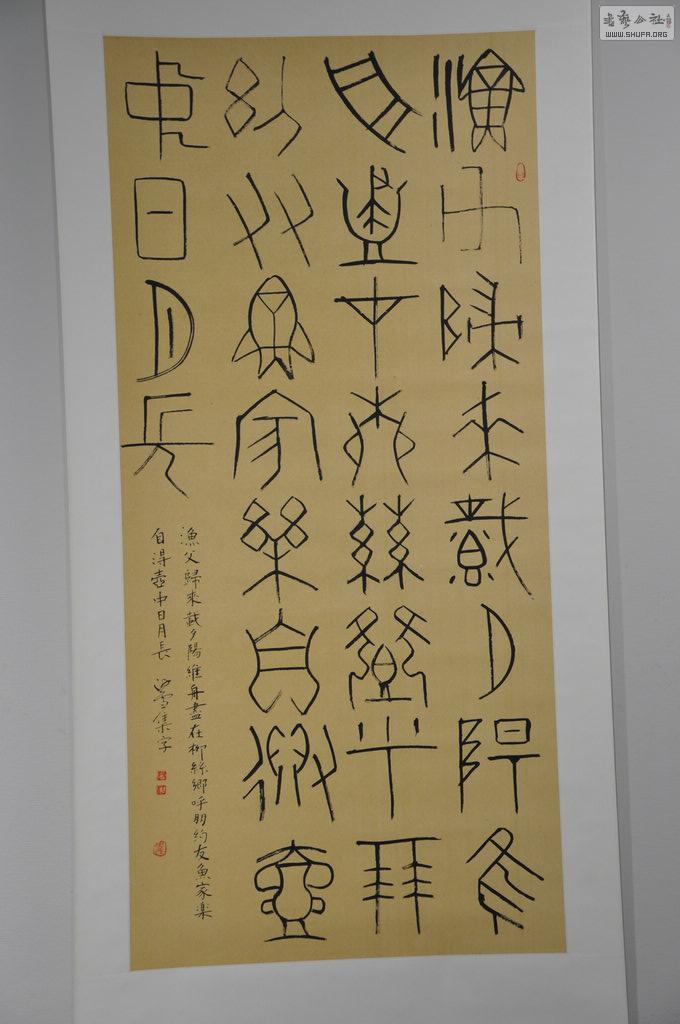 漁父歸來載夕陽維
舟盡在柳絲鄉呼朋
約友魚家樂自得壺
中日月長
漁父歸來載夕陽維舟盡在柳絲鄉呼朋約友魚家楽
自得壺中日月長 雪集字
書藝公社
WWW.SHUFA.ORG